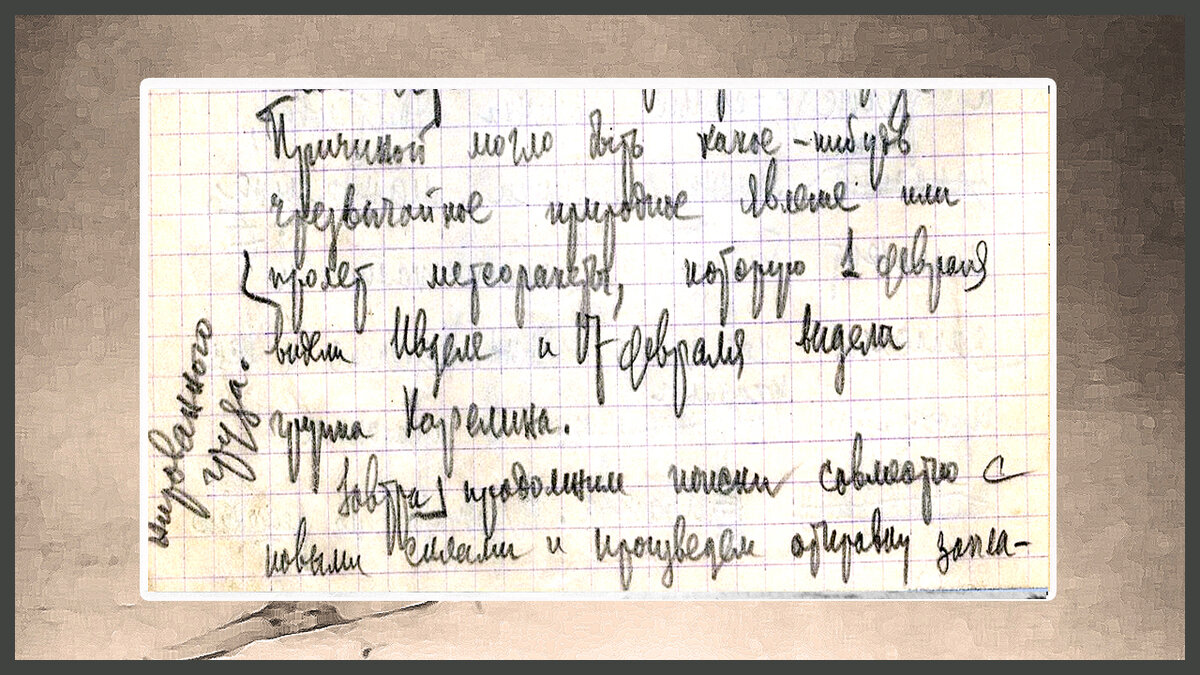 Причиной могло быть какое-нибудь
чрезвычайное природное явление или
пролет метеоракеты, которую 1 февраля
видели Ивделе и 17 февраля видела
группа Карелина.
Завтра продолжим поиски совместно с
новыми силами и произведем отправку
нированного
груза.